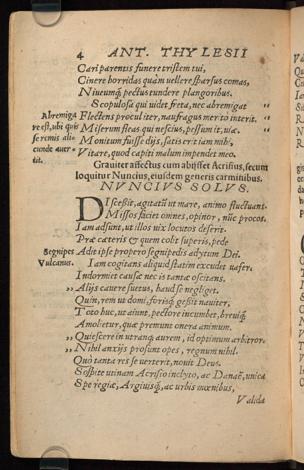 4 ANT. THYLESII
Cari parentis funere tristem tui,
Cinere horridas quàm vellere sparsus comas,
Niveumq́; pectus tundere plangoribus.
Scopulosa qui videt freta, nec abremigat „
Abremiga
re est, ubi quis
se remis aliò
cunde aver-
tit.
Flectens procul iter, naufragus merito interit. „
Miserum fleas qui nescius, pessum it, viæ.
Monitum fuisse dijs, satis erit iam mihi,
Vitare, quod capiti malum impendet meo.
Graviter affectus cum abijsset Acrisius, secum
loquitur Nuncius, eiusdem generis carminibus.
NVNCIVS SOLVS.
DIscessit, agitatũ ut mare, animo fluctuans.
Missos faciet omines, opinor, nũc procos.
Iam adsunt, ut illos vix locutos deserit.
Præ cæteris & quem colit superis, pede
Segnipes
Vulcanus.
Adit ipse propero segnipedis adytum Dei.
Iam cogitans aliquid statim excudet vafer.
Indormit causæ nec is tantæ oscitans.
„ Alijs cavere suetus, haud se negliget.
Quin, rem ut domi, forisq́; gessit naviter,
Toto huc, ut aiunt, pectore incumbet, breviq́;
Amoletur, quæ premunt onera animum.
„ Quiescere in utranq; aurem, id optimum arbitror.
„ Nihil anxijs prosunt opes, regnum nihil.
Quò tanta res se verterit, novit Deus.
Sospite utinam Acrisio inclyto, ac Danaë, unica
Spe regiæ, Argiuisq́;, ac urbis mœnibus,
Valida